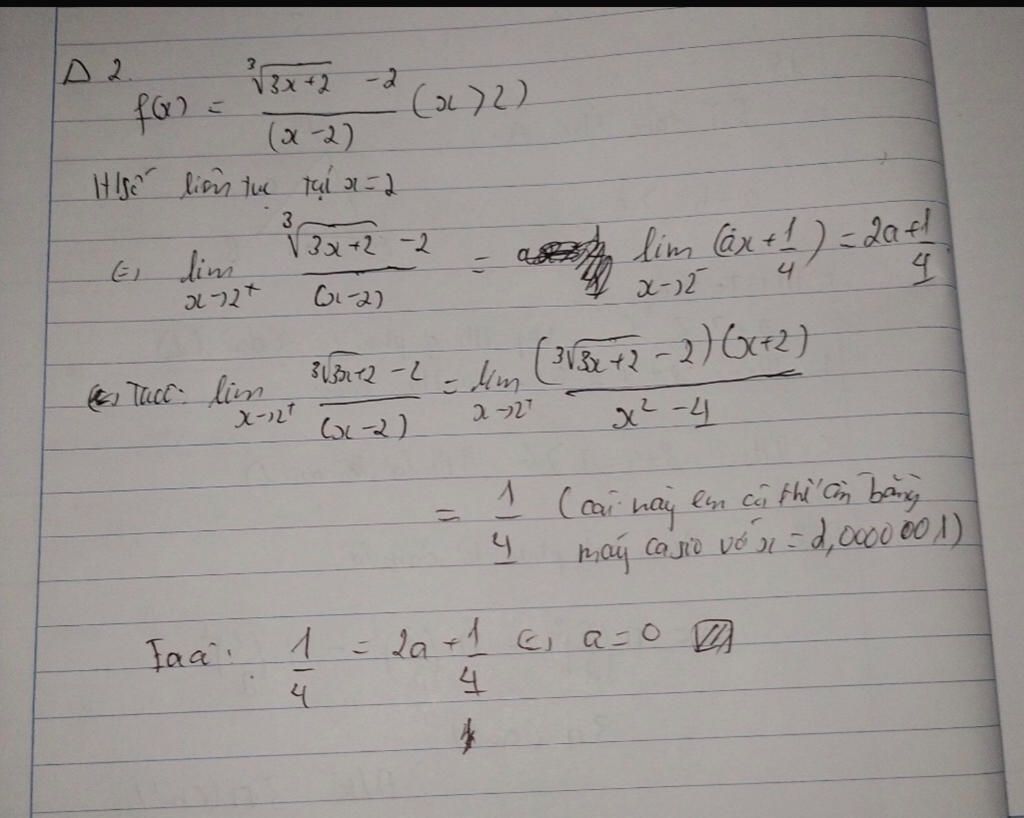 Δ 2.
f(x) = \frac{\sqrt[3]{3x+2} - 2}{(x-2)} (x > 2)
H/số liên tục tại x = 2
⇔ \lim_{x→2^+} \frac{\sqrt[3]{3x+2} - 2}{(x-2)} = \lim_{x→2^-} (ax + \frac{1}{4}) = 2a + \frac{1}{4}
Ta có: \lim_{x→2^+} \frac{\sqrt[3]{3x+2} - 2}{(x-2)} = \lim_{x→2^+} \frac{(\sqrt[3]{3x+2} - 2)(x+2)}{x^2 - 4}
= \frac{1}{4} (cái này em có thể ấn bằng
máy casio với x = 2,0000001)
Ta có: \frac{1}{4} = 2a + \frac{1}{4} ⇔ a = 0